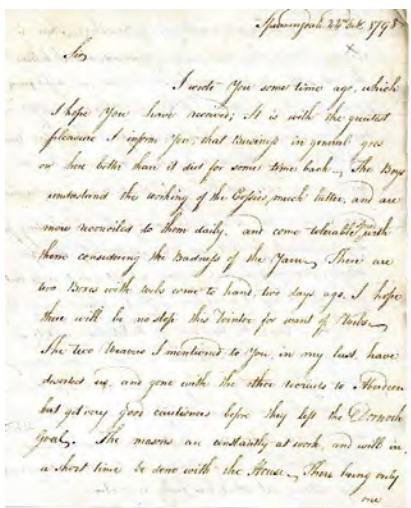 Spinningdale 22d Feb. 1795
x
Sir
I wrote You some time ago, which
I hope You have received; It is with the greatest
pleasure I inform You, that Business in general goes
on here better than it did for some time back. The Boys
understand the working of the Coffies, much better, and are
more reconciled to them daily. and come tolerable speed with
them considering the Badness of the Yarn, There are
two Boxes with cods come to hand, two days ago. I hope
there will be no stop this Winter for want of
The two Weavers I mentioned to You, in my last, have
deserted us, and gone with the other recruits to Aberdeen
but got very good cautioners before they left the Dornoch
Goal. The masons are constantly at work, and will in
a short time be done with the House. There being only
one